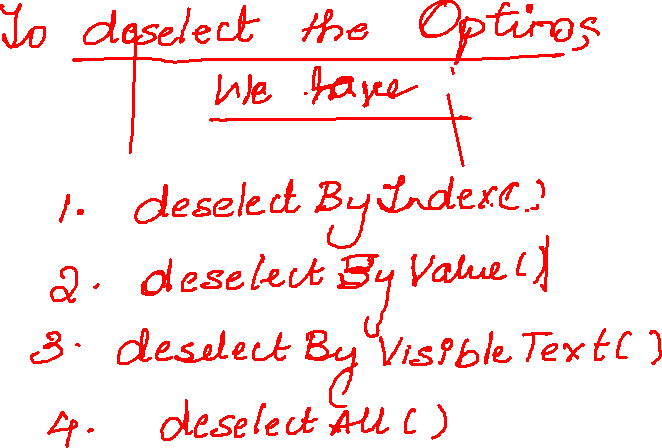 To deselect the Options
We have
1. deselect By Index()
2. deselect By Value()
3. deselect By Visible Text()
4. deselect All ()